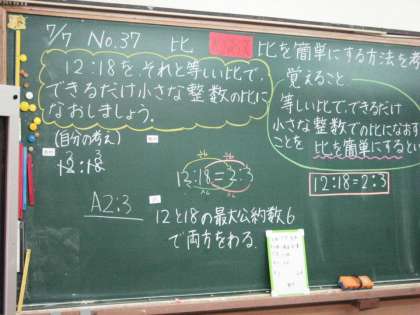 7/7 No.37 比
比を簡単にする方法を考
12:18を、それと等しい比で、
できるだけ小さな整数の比に
なおしましょう。
(自分の考え)
12:18
12:18=2:3
A 2:3
12と18の最大公約数6
で両方をわる。
覚えること
等しい比で、できるだけ
小さな整数での比になおす
ことを 比を簡単にするとい
12:18=2:3